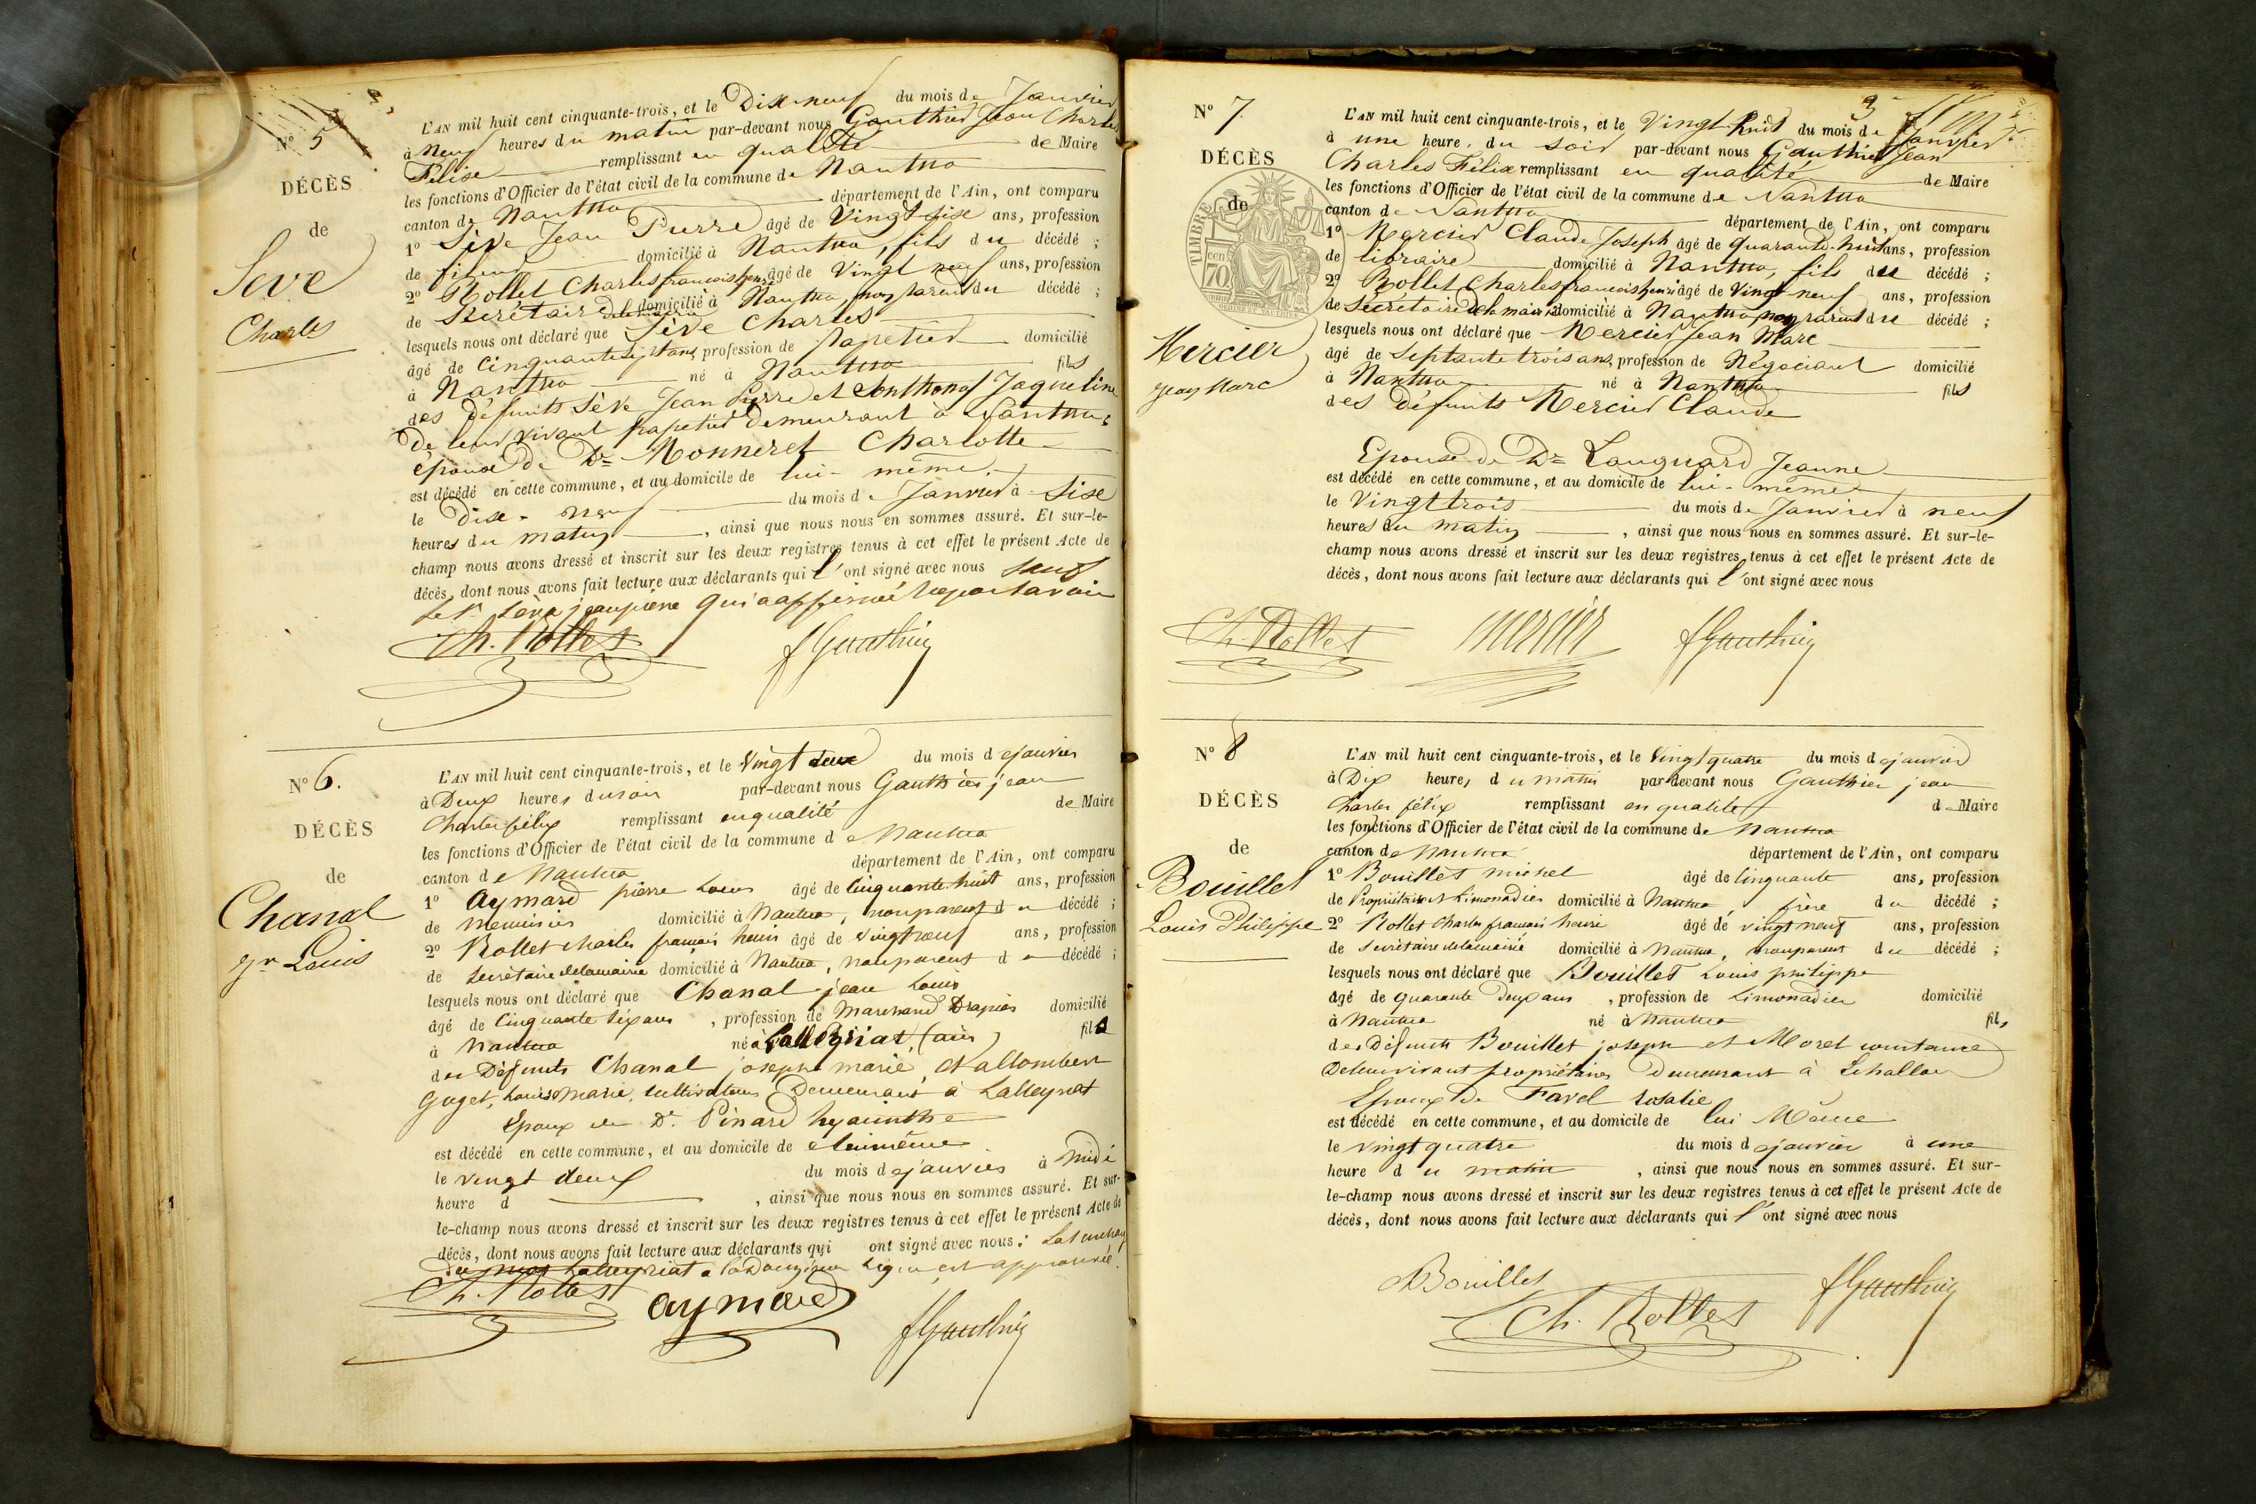 N° 5
DÉCÈS
de
Seve
Charles
L'AN mil huit cent cinquante-trois, et le Dix-neuf du mois de Janvier
à Neuf heures du matin par-devant nous Gauthier Jean Charles
Félix remplissant en qualité de Maire
les fonctions d'Officier de l'état civil de la commune de Nantua
canton de Nantua département de l'Ain, ont comparu
1° Sève Jean Pierre âgé de Vingt-six ans, profession
de fileur domicilié à Nantua, fils du décédé ;
2° Rollet Charles francois henri âgé de Vingt neuf ans, profession
de Secrétaire de la mairie domicilié à Nantua, non parent du décédé ;
lesquels nous ont déclaré que Sève Charles
âgé de Cinquante sept ans, profession de papetier domicilié
à Nantua né à Nantua fils
des défunts Sève Jean Pierre et Jaqueline
De leur vivant papetier demeurant à Nantua
époux de De Monneret Charlotte
est décédé en cette commune, et au domicile de lui-même
le dix-neuf du mois de Janvier à Six
heures du matin, ainsi que nous nous en sommes assuré. Et sur-le-
champ nous avons dressé et inscrit sur les deux registres tenus à cet effet le présent Acte de
décès, dont nous avons fait lecture aux déclarants qui l'ont signé avec nous sauf
le sr Sève jean pierre qui a affirmé ne pas savoir
Ch. Rollet fGauthier
N° 6.
DÉCÈS
de
Chanal
Jn Louis
L'AN mil huit cent cinquante-trois, et le Vingt deux du mois de janvier
à Deux heures du soir par-devant nous Gauthier jean
Charles félix remplissant en qualité de Maire
les fonctions d'Officier de l'état civil de la commune de Nantua
canton de Nantua département de l'Ain, ont comparu
1° Aymard pierre Louis âgé de Cinquante-huit ans, profession
de Menuisier domicilié à Nantua, non parent du décédé ;
2° Rollet charles francois henri âgé de vingt neuf ans, profession
de Secrétaire de la mairie domicilié à Nantua, non parent du décédé ;
lesquels nous ont déclaré que Chanal jean Louis
âgé de Cinquante six ans, profession de Marchand Drapier domicilié
à Nantua né à Lalleyriat, (ain) fils
des Défunts Chanal joseph marie, et allombert
Goget, Louise Marie, cultivateurs Demeurant à Lalleyriat
Epoux de De Pinard hyacinthe
est décédé en cette commune, et au domicile de lui même
le vingt deux du mois de janvier à midi
heure d , ainsi que nous nous en sommes assuré. Et sur-
le-champ nous avons dressé et inscrit sur les deux registres tenus à cet effet le présent Acte de
décès, dont nous avons fait lecture aux déclarants qui ont signé avec nous. La surcharge
du mot Lalleyriat à la Douzième Ligne est approuvée.
Ch. Rollet aymard fGauthier
3
N° 7
DÉCÈS
de
TIMBRE
70
Mercier
Jean Marc
L'AN mil huit cent cinquante-trois, et le Vingt-trois du mois de Janvier
à une heure du soir par-devant nous Gauthier Jean
Charles Félix remplissant en qualité de Maire
les fonctions d'Officier de l'état civil de la commune de Nantua
canton de Nantua département de l'Ain, ont comparu
1° Mercier Claude Joseph âgé de quarante-huit ans, profession
de libraire domicilié à Nantua, fils du décédé ;
2° Rollet Charles francois henri âgé de Vingt-neuf ans, profession
de Secrétaire de la mairie domicilié à Nantua non parent du décédé ;
lesquels nous ont déclaré que Mercier Jean Marc
âgé de Septante trois ans, profession de Négociant domicilié
à Nantua né à Nantua fils
des défunts Mercier Claude
Epouse de De Jeanne
est décédé en cette commune, et au domicile de lui-même
le Vingt trois du mois de Janvier à neuf
heures du matin, ainsi que nous nous en sommes assuré. Et sur-le-
champ nous avons dressé et inscrit sur les deux registres tenus à cet effet le présent Acte de
décès, dont nous avons fait lecture aux déclarants qui l'ont signé avec nous
Ch. Rollet mercier fGauthier
N° 8
DÉCÈS
de
Bouillet
Louis Philippe
L'AN mil huit cent cinquante-trois, et le Vingt quatre du mois de janvier
à Dix heures du matin par-devant nous Gauthier jean
Charles félix remplissant en qualité de Maire
les fonctions d'Officier de l'état civil de la commune de Nantua
canton de Nantua département de l'Ain, ont comparu
1° Bouillet michel âgé de Cinquante ans, profession
de Propriétaire et Limonadier domicilié à Nantua, frère du décédé ;
2° Rollet Charles francois henri âgé de vingt neuf ans, profession
de secrétaire de la mairie domicilié à Nantua, non parent du décédé ;
lesquels nous ont déclaré que Bouillet Louis philippe
âgé de quarante Deux ans, profession de Limonadier domicilié
à Nantua né à Nantua fils
des Défunts Bouillet joseph et Moret constance
De leur vivant propriétaires Demeurant à
Epoux de Favel rosalie
est décédé en cette commune, et au domicile de lui Même
le vingt quatre du mois de janvier à une
heure du matin, ainsi que nous nous en sommes assuré. Et sur-
le-champ nous avons dressé et inscrit sur les deux registres tenus à cet effet le présent Acte de
décès, dont nous avons fait lecture aux déclarants qui l'ont signé avec nous
Bouillet
Ch. Rollet fGauthier